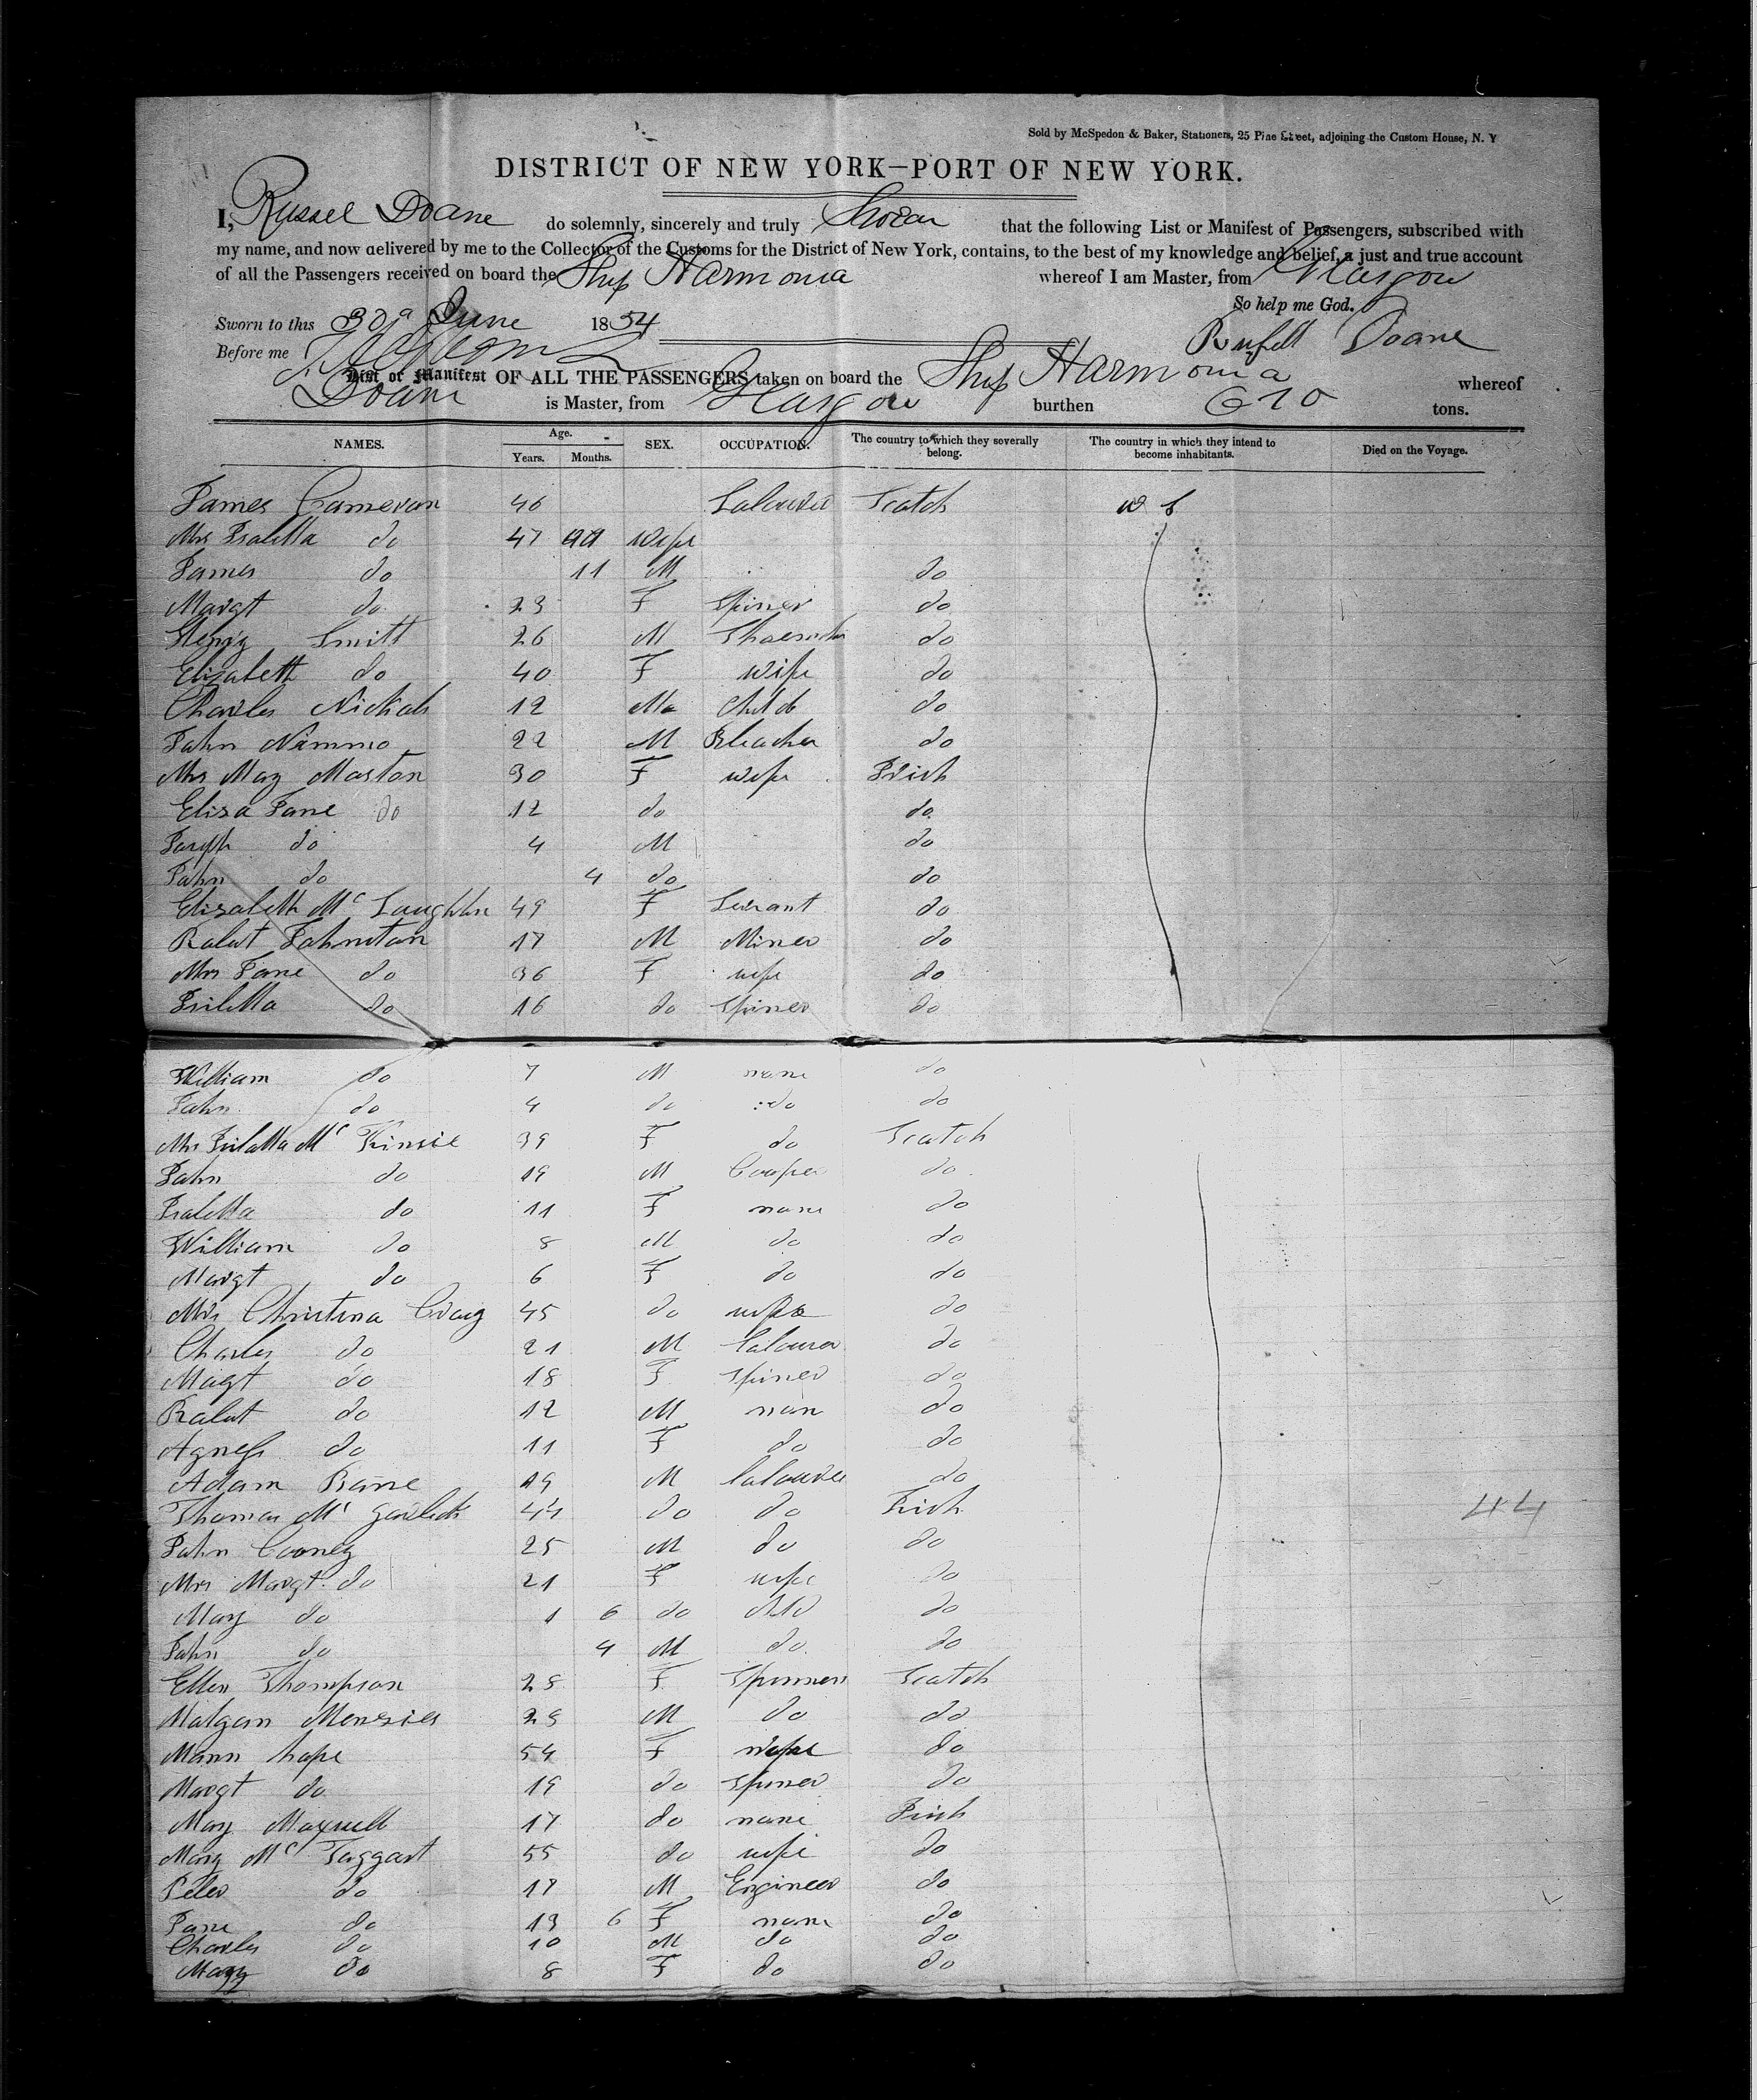 Sold by McSpedon & Baker, Stationers, 25 Pine Street, adjoining the Custom House, N. Y
DISTRICT OF NEW YORK—PORT OF NEW YORK.
I, Russel Doane do solemnly, sincerely and truly Swear that the following List or Manifest of Passengers, subscribed with
my name, and now delivered by me to the Collector of the Customs for the District of New York, contains, to the best of my knowledge and belief, a just and true account
of all the Passengers received on board the Ship Harmonia whereof I am Master, from Glasgow
So help me God.
Sworn to this 30 June 1854
Russell Doane
Before me
List or Manifest OF ALL THE PASSENGERS taken on board the Ship Harmonia whereof
Doane is Master, from Glasgow burthen 610 tons.
NAMES. Age. Years. Months. SEX. OCCUPATION. The country to which they severally belong. The country in which they intend to become inhabitants. Died on the Voyage.
James Cameron 46 Labourer Scotch U S
Mrs Isabella do 47 wife
James do 11 M do
Margt do 23 F Spiner do
Henry Smith 26 M Shoemaker do
Elizabeth do 40 F wife do
Charles Nickols 12 Ma child do
John Nimmo 22 M Bleacher do
Mrs May Maston 30 F wife Irish
Elisa Jane do 12 do do
Joseph do 4 M do
John do 4 do do
Elisabeth Mc Laughlin 49 F Servant do
Robert Johnston 17 M Miner do
Mrs Jane do 36 F wife do
Isabella do 16 do Spiner do
William do 7 M none do
John do 4 do do do
Mrs Isabella Mc Kinsie 39 F do Scotch
John do 19 M Cooper do
Isabella do 11 F none do
William do 8 M do do
Margt do 6 F do do
Mrs Christina Craig 45 do wife do
Charles do 21 M labourer do
Magt do 18 F Spiner do
Robert do 12 M non do
Agness do 11 F do do
Adam Rane 19 M labourer do
Thomas Mc 44 do do Irish
44
John Cooney 25 M do do
Mrs Margt do 21 F wife do
Mary do 1 6 do child do
John do 4 M do do
Ellen Thompson 28 F Spinner Scotch
Malgam Mensies 29 M do do
Mann hope 54 F wife do
Margt do 19 do Spiner do
May Maxwell 17 do none Irish
Mary Mc Taggart 55 do wife do
Peter do 17 M Engineer do
Jane do 13 6 F none do
Charles do 10 M do do
Mary do 8 F do do